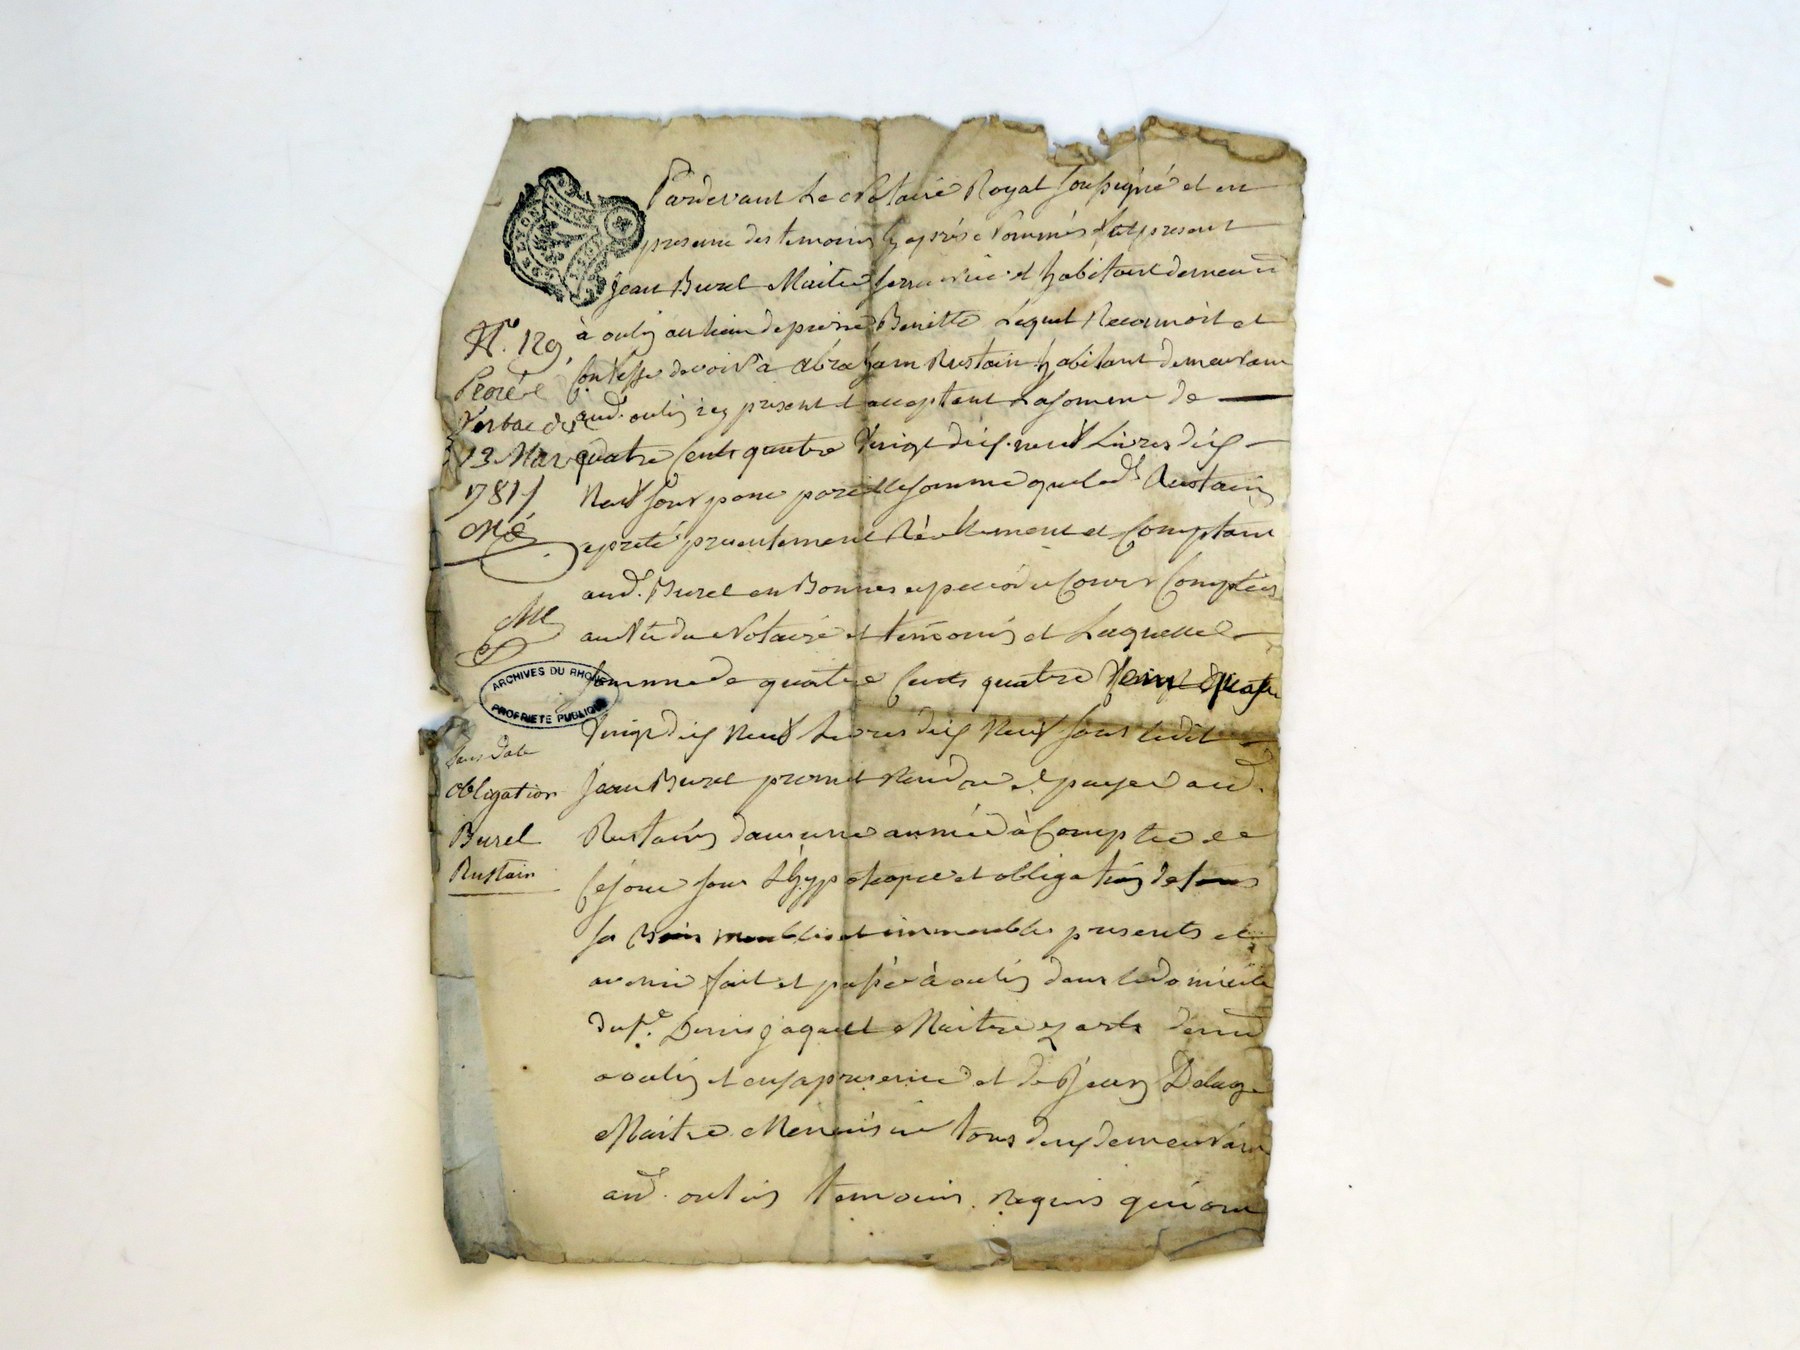 Pardevant Le Notaire Royal soussigné et en
presence des temoins cy après Nommés fut present
Jean Burel Maitre serrurier et habitant demeurt
à oulin au lieu de pierre Benitte Lequel Reconnoit et
Confesse devoir a Abraham Rustain habitant demeurant
aud. oulin icy present et acceptant La somme de
quatre Cents quatre Vingt dix neuf Livres dix
Neuf sous pour pareille somme que led. Rustain
a preté presentement Réellement et Comptant
aud. Burel en Bonnes especes de Cours Comptées
au Vü du Notaire et temoins et Laquelle
somme de quatre Cents quatre
Vingt dix Neuf Livres dix Neuf sous ledit
Jean Burel promet Rendre et payer aud.
Rustain dans une année à Compter de
Ce jour sous L'hypoteque et obligation de tous
ses Biens meubles et immeubles presents et
avenir fait et passé à oulin dans le domicile
du sr. Denis Jaquet Maitre ez arts demt
a oulin et en sa presence et de Jean Delage
Maitre Menuisier tous deux demeurant
aud. oulin temoins Requis qui ont
LYON
No. 129
Verbal du
13 Mars
1781
ARCHIVES DU RHONE
PROPRIETE PUBLIQUE
sans date
obligation
Burel
Rustain